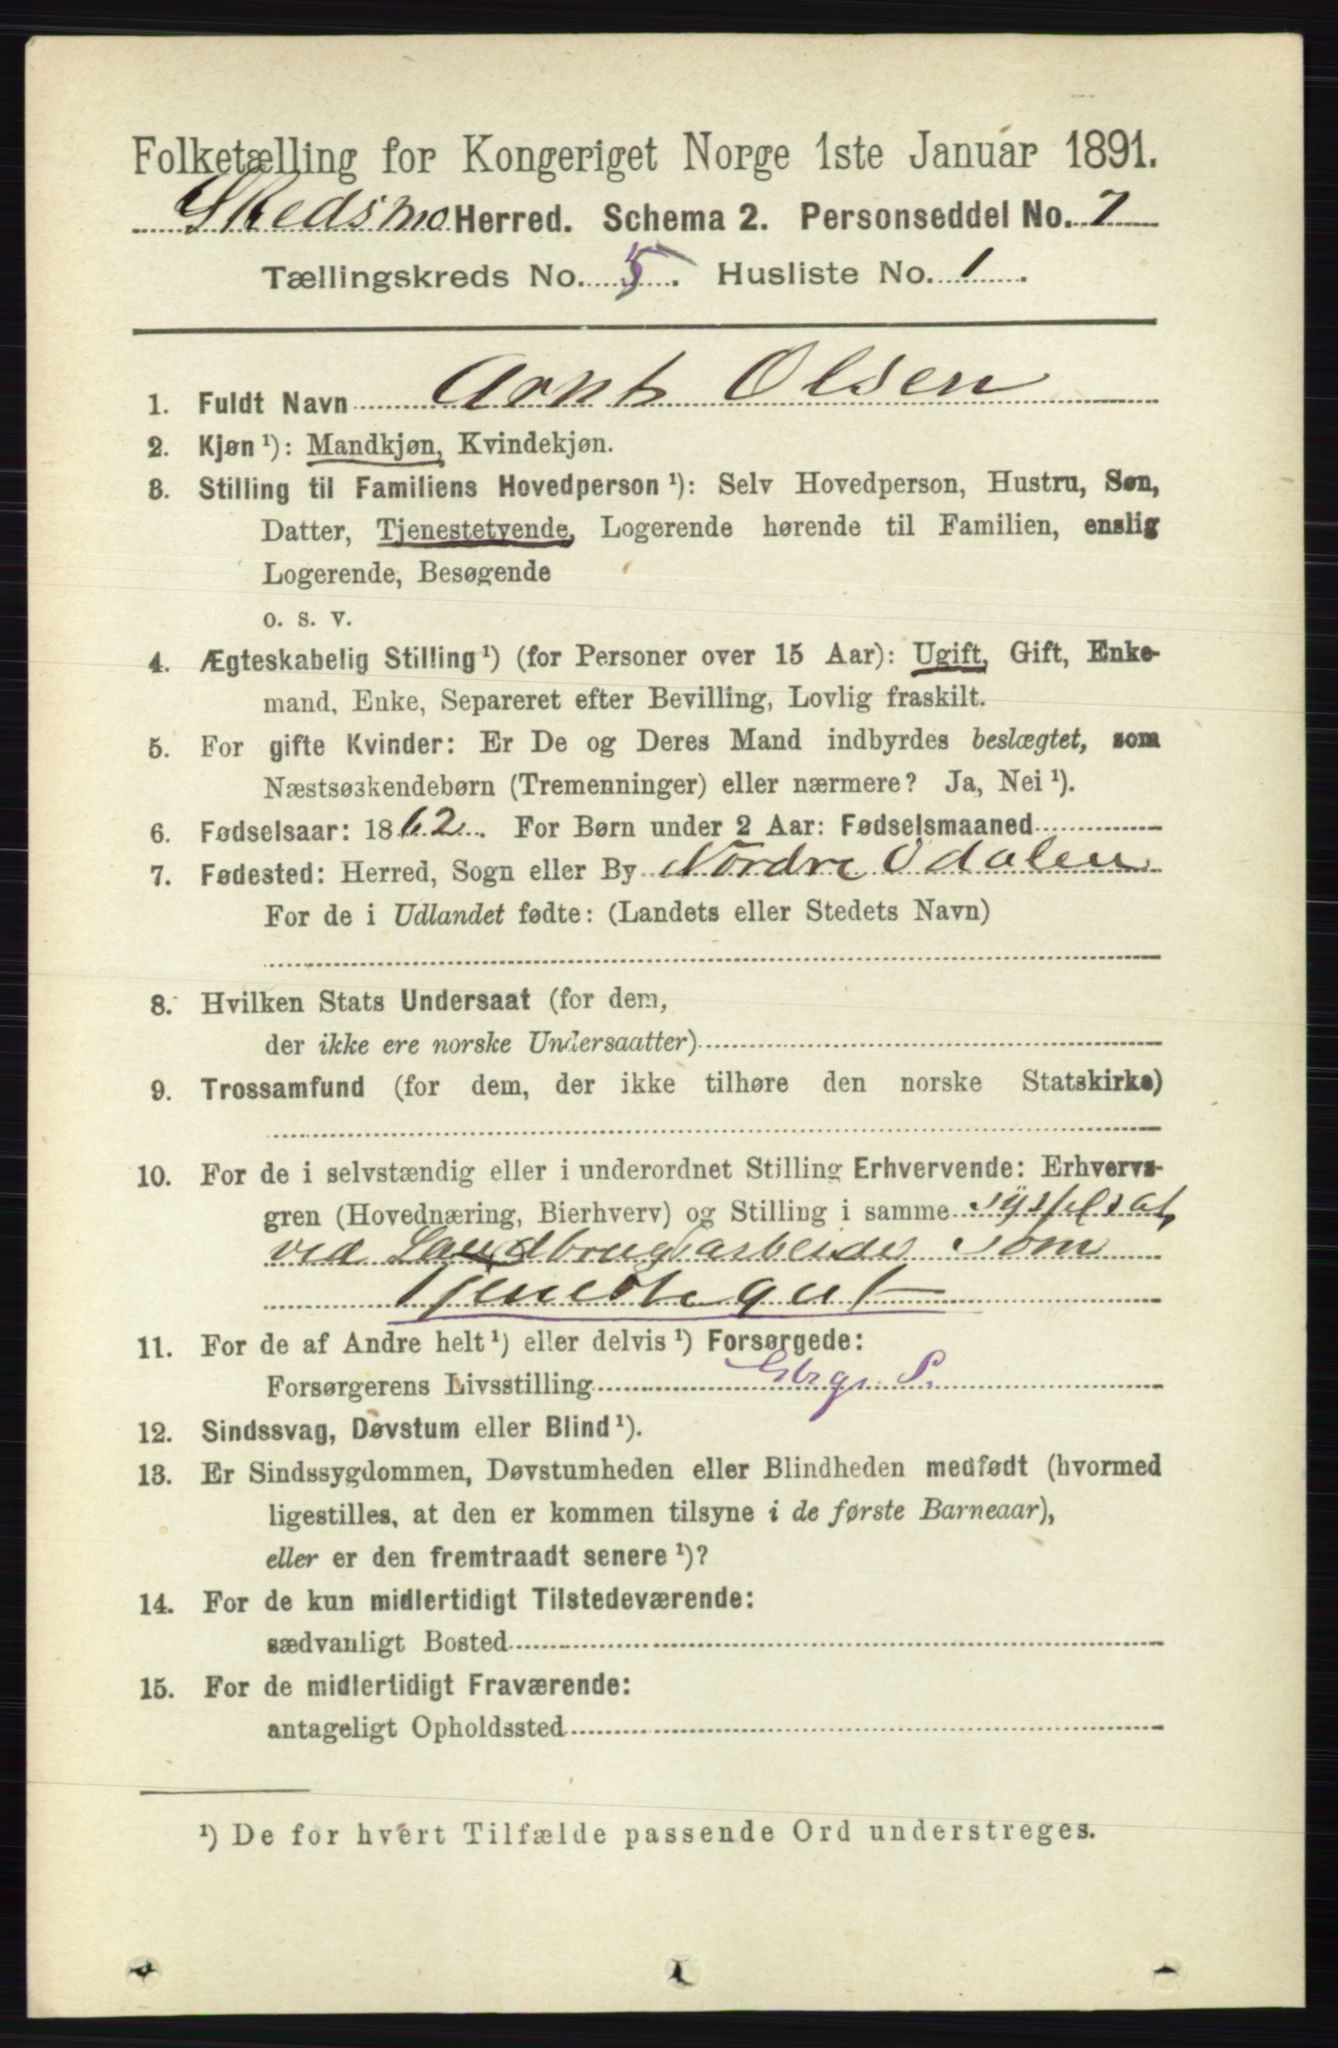 Folketælling for Kongeriget Norge 1ste Januar 1891.
Skedsmo Herred. Schema 2. Personseddel No. 7
Tællingskreds No. 5. Husliste No. 1.
1. Fuldt Navn Arnt Olsen
2. Kjøn ¹): Mandkjøn, Kvindekjøn.
3. Stilling til Familiens Hovedperson ¹): Selv Hovedperson, Hustru, Søn,
Datter, Tjenestetyende, Logerende hørende til Familien, enslig
Logerende, Besøgende
o. s. v.
4. Ægteskabelig Stilling ¹) (for Personer over 15 Aar): Ugift, Gift, Enke-
mand, Enke, Separeret efter Bevilling, Lovlig fraskilt.
5. For gifte Kvinder: Er De og Deres Mand indbyrdes beslægtet, som
Næstsøskendebørn (Tremenninger) eller nærmere? Ja, Nei ¹).
6. Fødselsaar: 1862. For Børn under 2 Aar: Fødselsmaaned
7. Fødested: Herred, Sogn eller By Nordre Odalen
For de i Udlandet fødte: (Landets eller Stedets Navn)
8. Hvilken Stats Undersaat (for dem,
der ikke ere norske Undersaatter)
9. Trossamfund (for dem, der ikke tilhøre den norske Statskirke)
10. For de i selvstændig eller i underordnet Stilling Erhvervende: Erhvervs-
gren (Hovednæring, Bierhverv) og Stilling i samme sysselsat
ved Landbrugsarbeide som
Tjenestegut
11. For de af Andre helt ¹) eller delvis ¹) Forsørgede:
Forsørgerens Livsstilling
12. Sindssvag, Døvstum eller Blind ¹).
13. Er Sindssygdommen, Døvstumheden eller Blindheden medfødt (hvormed
ligestilles, at den er kommen tilsyne i de første Barneaar),
eller er den fremtraadt senere ¹)?
14. For de kun midlertidigt Tilstedeværende:
sædvanligt Bosted
15. For de midlertidigt Fraværende:
antageligt Opholdssted
¹) De for hvert Tilfælde passende Ord understreges.